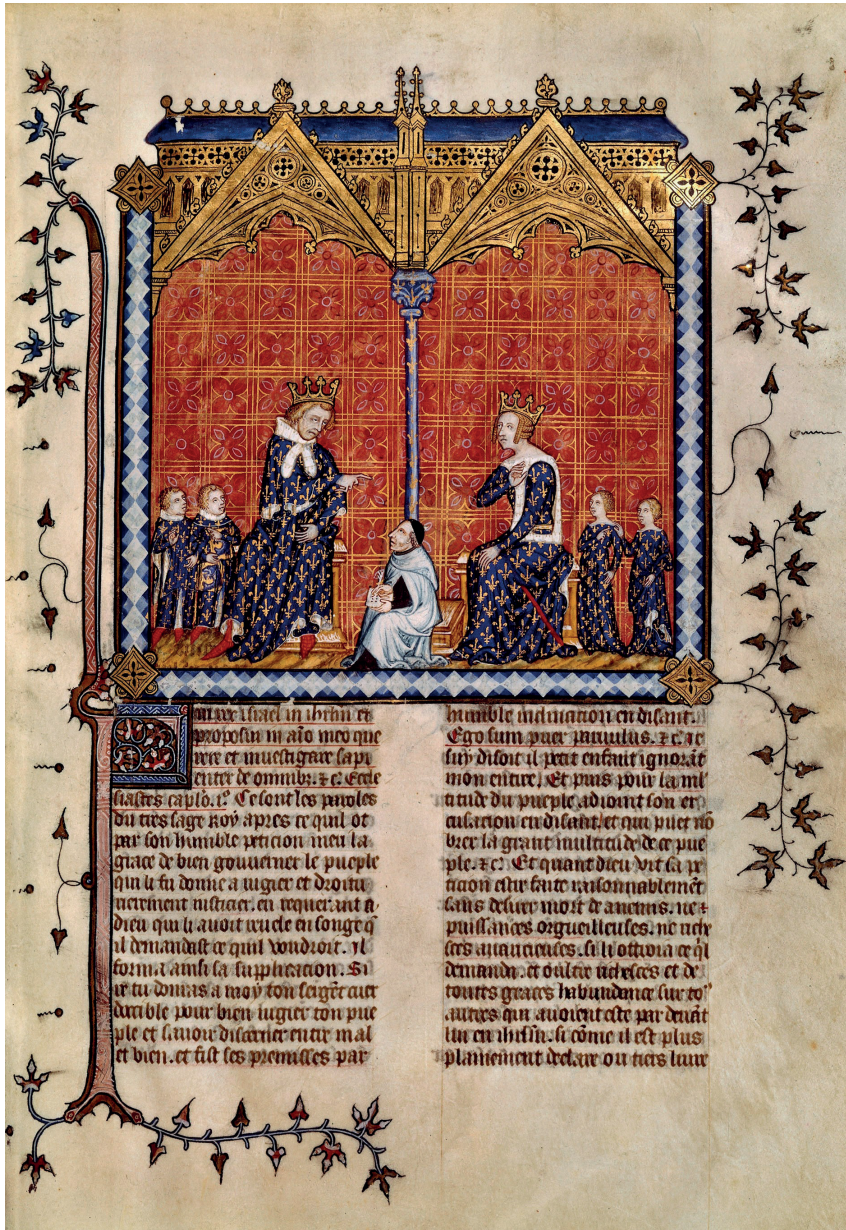 Fui rex israel in ihrlm et
proposui in aīo meo que
rere et inuestigare sapi
enter de omnibꝫ. ⁊c. Eccle
siastes caplo. i°. Ce sont les paroles
du tres sage Roy apres ce quil ot
par son humble peticion meu la
grace de bien gouuerner le pueple
qui li fu donne a iugier et droitu
rierement iusticier. en requerant a
dieu qui li auoit reuele en songe q̄
il demandast ce quil voudroit. Il
forma ainsi sa supplicacion. Si
re tu donras a moy ton sergēt cuer
docible pour bien iugier ton pue
ple et sauoir discerner entre mal
et bien. et fist ses premisses par
humble induction en disant.
Ego sum puer paruulus. ⁊c. ie
suy disoit il petit enfant ignorāt
mon entree. Et puis pour la ml
titude du pueple adioint son ex
cusacion en disant. et qui puet nō
brer la grant multitude de ce pue
ple. ⁊c. Et quant dieu vit sa pe
ticion estre faite raisonnablemēt
sans desirer mort de anemis. ne
puissances orgueilleuses. ne riche
sces auaricieuses. si li ottroia ce ql
demanda. et oultre richesces et de
toutes graces habundance sur toꝰ
autres qui auoient este par deuāt
lui en ihrlm. si cōme il est plus
plainement declare ou tiers liure